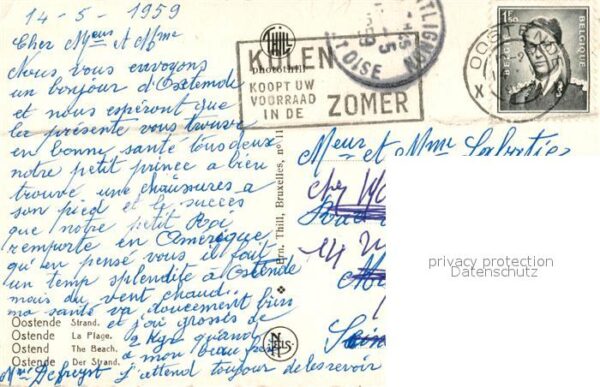 14-5-1959
Cher Mr et Mme
Nous vous envoyons
un bonjour d'Ostende
et nous espéront que
la présente vous trouve
en bonne santé tous deux
notre petit prince a bien
trouvé une chaussures a
son pied et le succès
que notre petit Roi
remporte en Amérique
qu'en pensé vous il fait
un temp splendite à Ostende
mais du vent chaud.
ma santé va doucement bien
et j'ai grosses de
2 Kgr quand
a mon beau frère
j'attend toujour de les revoir
Oostende Strand.
Ostende La Plage.
Ostend The Beach.
Ostende Der Strand.
THILL
photothill
Ern. Thill, Bruxelles, no 11
NELS
KOLEN
KOOPT UW
VOORRAAD
IN DE
ZOMER
OISE
OOSTENDE
X
1F50
BELGIQUE
BELGIE
Meur et Mme
chez
14
privacy protection
Datenschutz